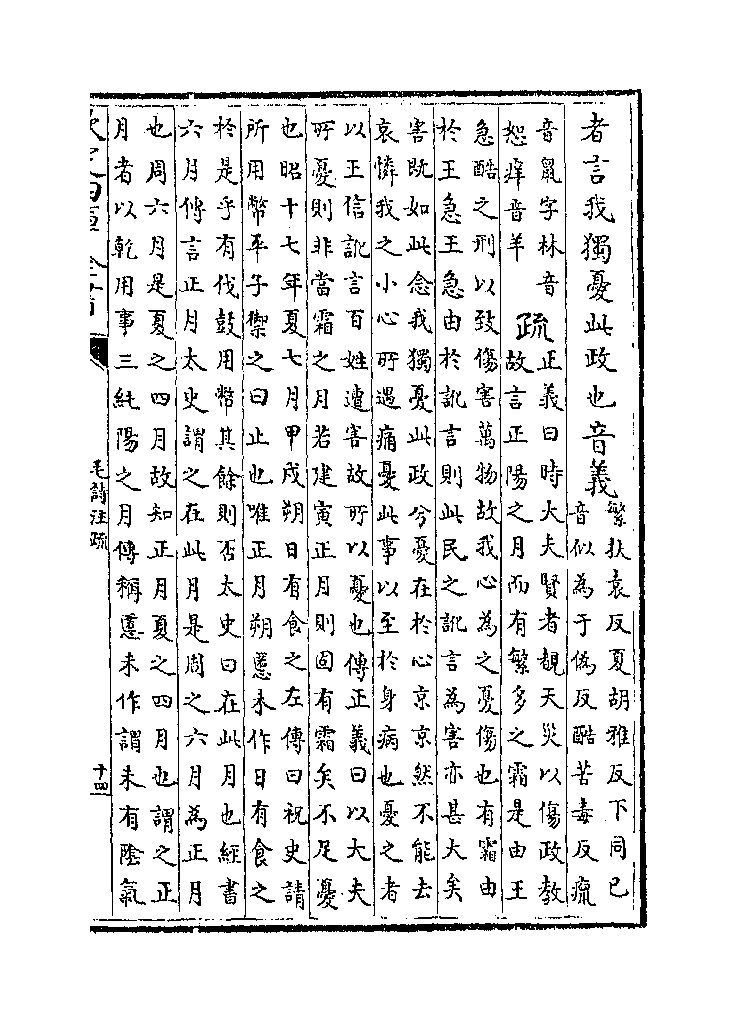 者言我獨憂此政也音義繁扶袁反夏胡雅反下同已
音似為于偽反酷苦毒反瘋
音鼠字林音
恕痒音羊
疏正義曰時大夫賢者覩天災以傷政教
故言正陽之月而有繁多之霜是由王
急酷之刑以致傷害萬物故我心為之憂傷也有霜由
於王急王急由於訛言則此民之訛言為害亦甚大矣
害既如此念我獨憂此政兮憂在於心京京然不能去
哀憐我之小心所遇痛憂此事以至於身病也憂之者
以王信訛言百姓遭害故所以憂也傳正義曰以大夫
所憂則非當霜之月若建寅正月則固有霜矣不足憂
也昭十七年夏七月甲戌朔日有食之左傳曰祝史請
所用幣平子禦之曰止也唯正月朔慝未作日有食之
於是乎有伐鼓用幣其餘則否太史曰在此月也經書
六月傳言正月太史謂之在此月是周之六月為正月
也周六月是夏之四月故知正月夏之四月也謂之正
月者以乾用事三純陽之月傳稱慝未作謂未有陰氣
毛詩注疏
十四